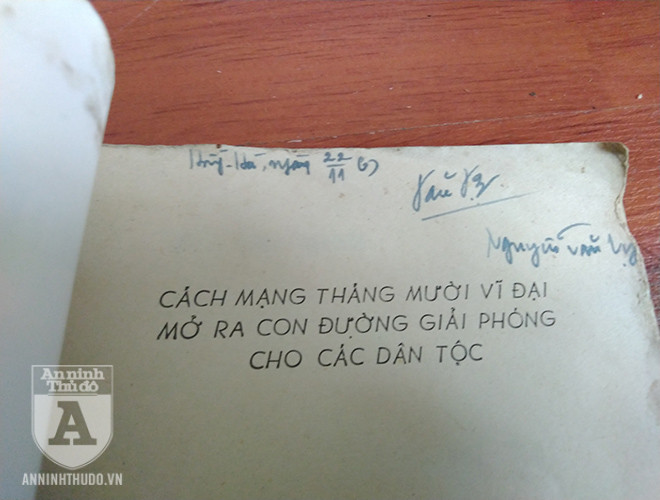 ngày 22/11
Nguyễn Văn
CÁCH MẠNG THÁNG MƯỜI VĨ ĐẠI
MỞ RA CON ĐƯỜNG GIẢI PHÓNG
CHO CÁC DÂN TỘC
An ninh
Thủ đô
A
ANNINHTHUDO.VN